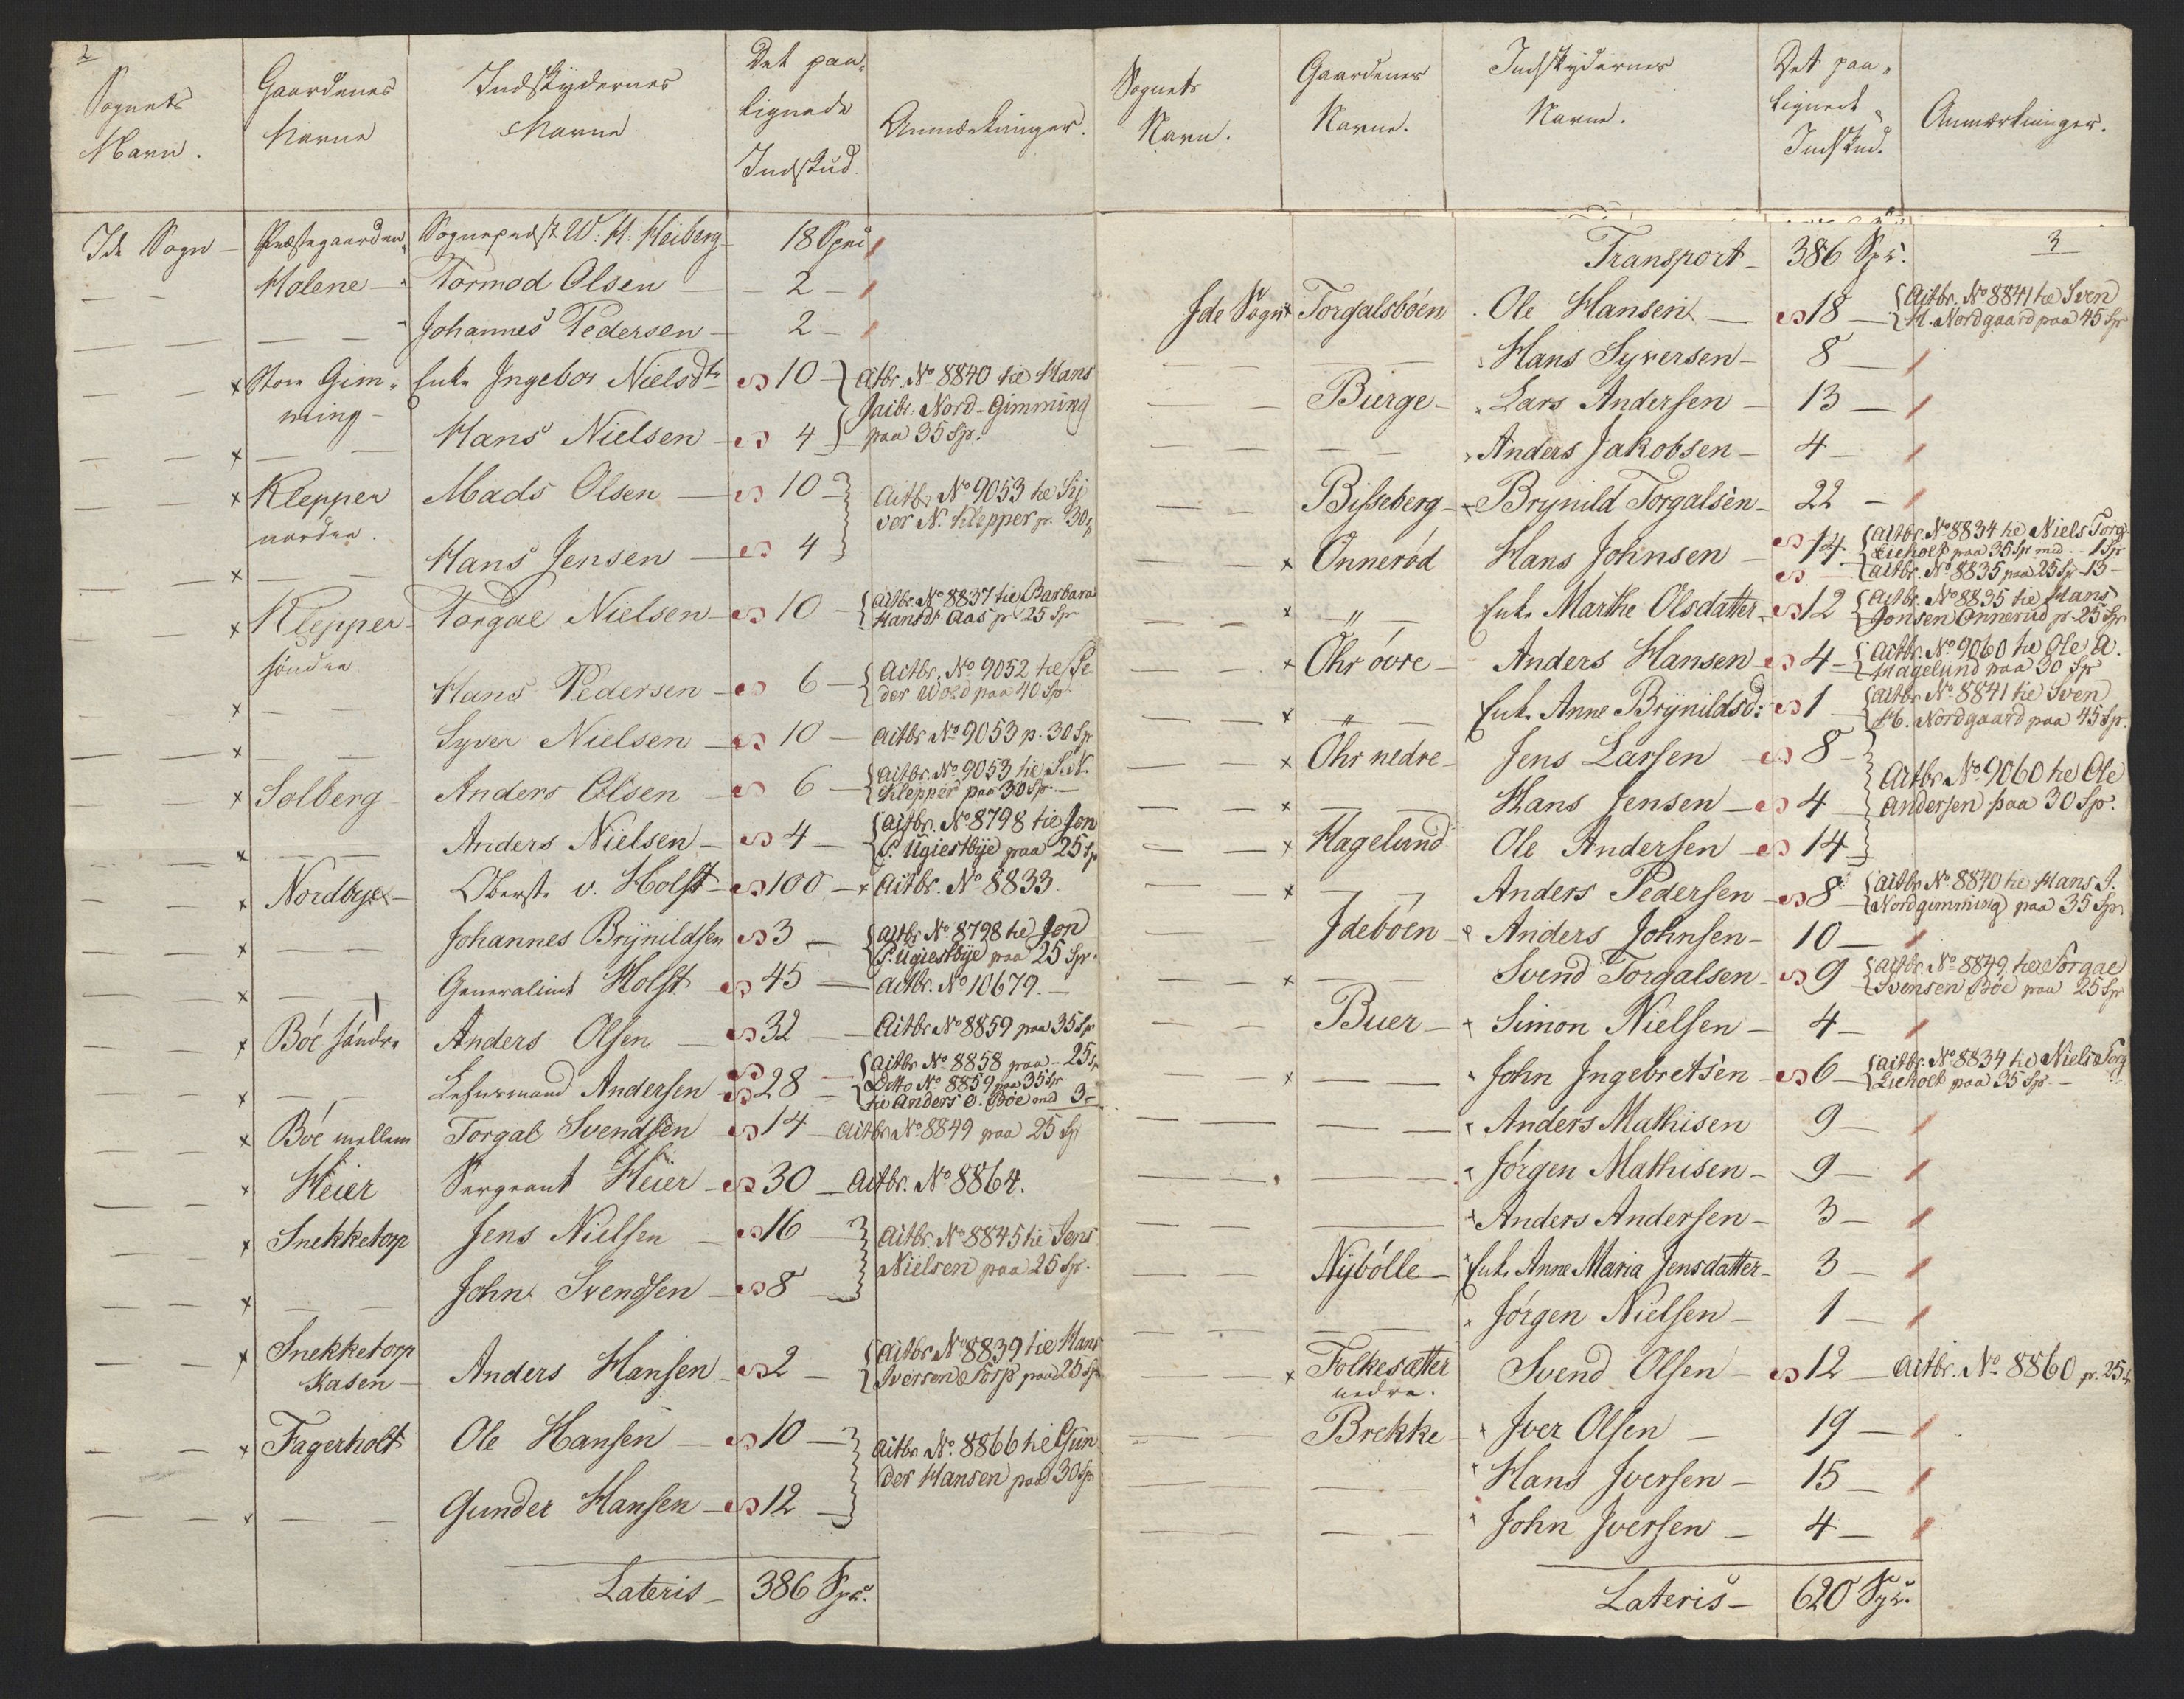 2
Sognets Navn. Gaardenes Navne Indskydernes Navne Det paa lignede Indskud. Anmærkninger.
Ide Sogn Præstegaarden Sognepræst W: H: Heiberg 18 Spéci
— — Holene — Tormod Olsen — 2 —
— — — — Johannes Pedersen — 2 —
— — x Store Gim- Enke Ingebor Nielsdtr 10 } Actbr. No 8840 til Hans
ming — Jacbr. Nord-Gimming
— — x — — Hans Nielsen — 4 } paa 35 Sp.
— — x Klepper Mads Olsen — 10 } Actbr No 9053 til Sy
nordre. ver N. Klepper pr. 30
— x — — Hans Jensen — 4 }
— x Klepper Torgal Nielsen — 10 — { Actbr. No 8837 til Barbara
søndre Hansdr. Aas pr 25 Sp
— — x — — Hans Pedersen — 6 — { Actbr. No 9052 til Pe-
der Wold paa 40 Sp.
— — x — — Syver Nielsen — 10 — Actbr No 9053 p. 30 Sp
— — x Solberg Anders Olsen 6 — { Actbr. No 9053 til S. N.
Klepper paa 30 Sp —
— — x — — Anders Nielsen — 4 — { Actbr. No 8798 til Jon
P. Ugiestbye paa 25 Sp
— — x Nordbye — Oberst. v. Holst — 100 — x Actbr. No 8833.
— — x — — Johannes Brynildsen 3 — { Actbr No 8798 til Jon
P. Ugiestbye paa 25 Sp.
— — x — — Generallieut Holst 45 — Actbr. No 10679. —
— — x Böe söndre Anders Olsen — 32 — Actbr No 8859 paa 35 Sp
— — x — — Lehnsmand Andersen 28 — { Actbr No 8858 paa — 25 Sp
Ditto No 8859 paa 35 Sp
til Anders O. Böe med 3 —
— — x Böe mellem Torgal Svendsen 14 — Actbr No 8849 paa 25 Sp
— — x Heier Sergeant Heier — 30 — Actbr. No 8864.
— — x Snekketorp Jens Nielsen — 16 } Actbr. No 8845 til Jens
Nielsen paa 25 Sp.
— — x — — John Svendsen — 8 — }
— — x Snekketorp
Kasen — Anders Hansen 2 — { Actbr No 8839 til Hans
Iversen Torp paa 25 Sp
— — x Fagerholt Ole Hansen — 10 — } Actbr No 8866 til Gun
der Hansen paa 30 Sp
— — x — — Gunder Hansen — 12 — }
Lateris — 386 Spc.
Sognets Navn. Gaardenes Navne. Indskydernes Navne. Det paa lignede Indskud. Anmærkninger.
3
Transport — 386 Spc.
Ide Sogn x Torgalsböen Ole Hansen — 18 — { Actbr. No 8841 til Sven
H. Nordgaard paa 45 Sp
— — — — Hans Syversen — 8 —
— — Bierge — Lars Andersen — 13 —
— — — — Anders Jakobsen — 4 —
— — Bisseberg — x Brynild Torgalsen — 22 —
— — x Önneröd Hans Johnsen — 14 { Actbr. No 8834 til Niels Torg
Lieholt paa 35 Sp med — 1 Sp
Actbr. No 8835 paa 25 Sp — 13 —
— — x — „ — Enke Marthe Olsdatter — 12 { Actbr. No 8835 til Hans
Jonsen Onnerud pr. 25 Sp
— — x Öhr övre — Anders Hansen — 4 — { Actbr. No 9060 til Ole A.
Hagelund paa 30 Sp
— — x — „ — Enke Anne Brynildsd: 1 { Actbr No 8841 til Sven
H. Nordgaard paa 45 Sp.
— — x Öhr nedre — Jens Larsen — 8 — } Actbr No 9060 til Ole
— — x — — Hans Jensen — 4 } Andersen paa 30 Sp.
— — x Hagelund Ole Andersen — 14 — }
— — x — „ — Anders Pedersen — 8 { Actbr No 8840 til Hans J.
Nordgimming paa 35 Sp
— — Ideböen — x Anders Johnsen — 10 —
— — x — — Svend Torgalsen — 9 { Actbr. No 8849 til Torgal
Svensen Böe paa 25 Sp
— — Buer — x Simon Nielsen — 4 —
— — x — — John Ingebretsen — 6 — { Actbr. No 8834 til Niels Torg
Lieholt paa 35 Sp. —
— — — — Anders Mathisen 9 —
— — — — Jörgen Mathisen — 9 —
— — — — x Anders Andersen — 3 —
— — Nybölle — x Enke Anne Maria Jensdatter — 3 —
— — — — x Jörgen Nielsen — 1 —
— — x Folkesætter Svend Olsen — 12 — Actbr. No 8860 pr. 25 Sp
nedre.
— — Brekke — x Iver Olsen — 19 —
— — — — x Hans Iversen — 15 —
— — — — x John Iversen — 4 —
Lateris — 620 Spc.